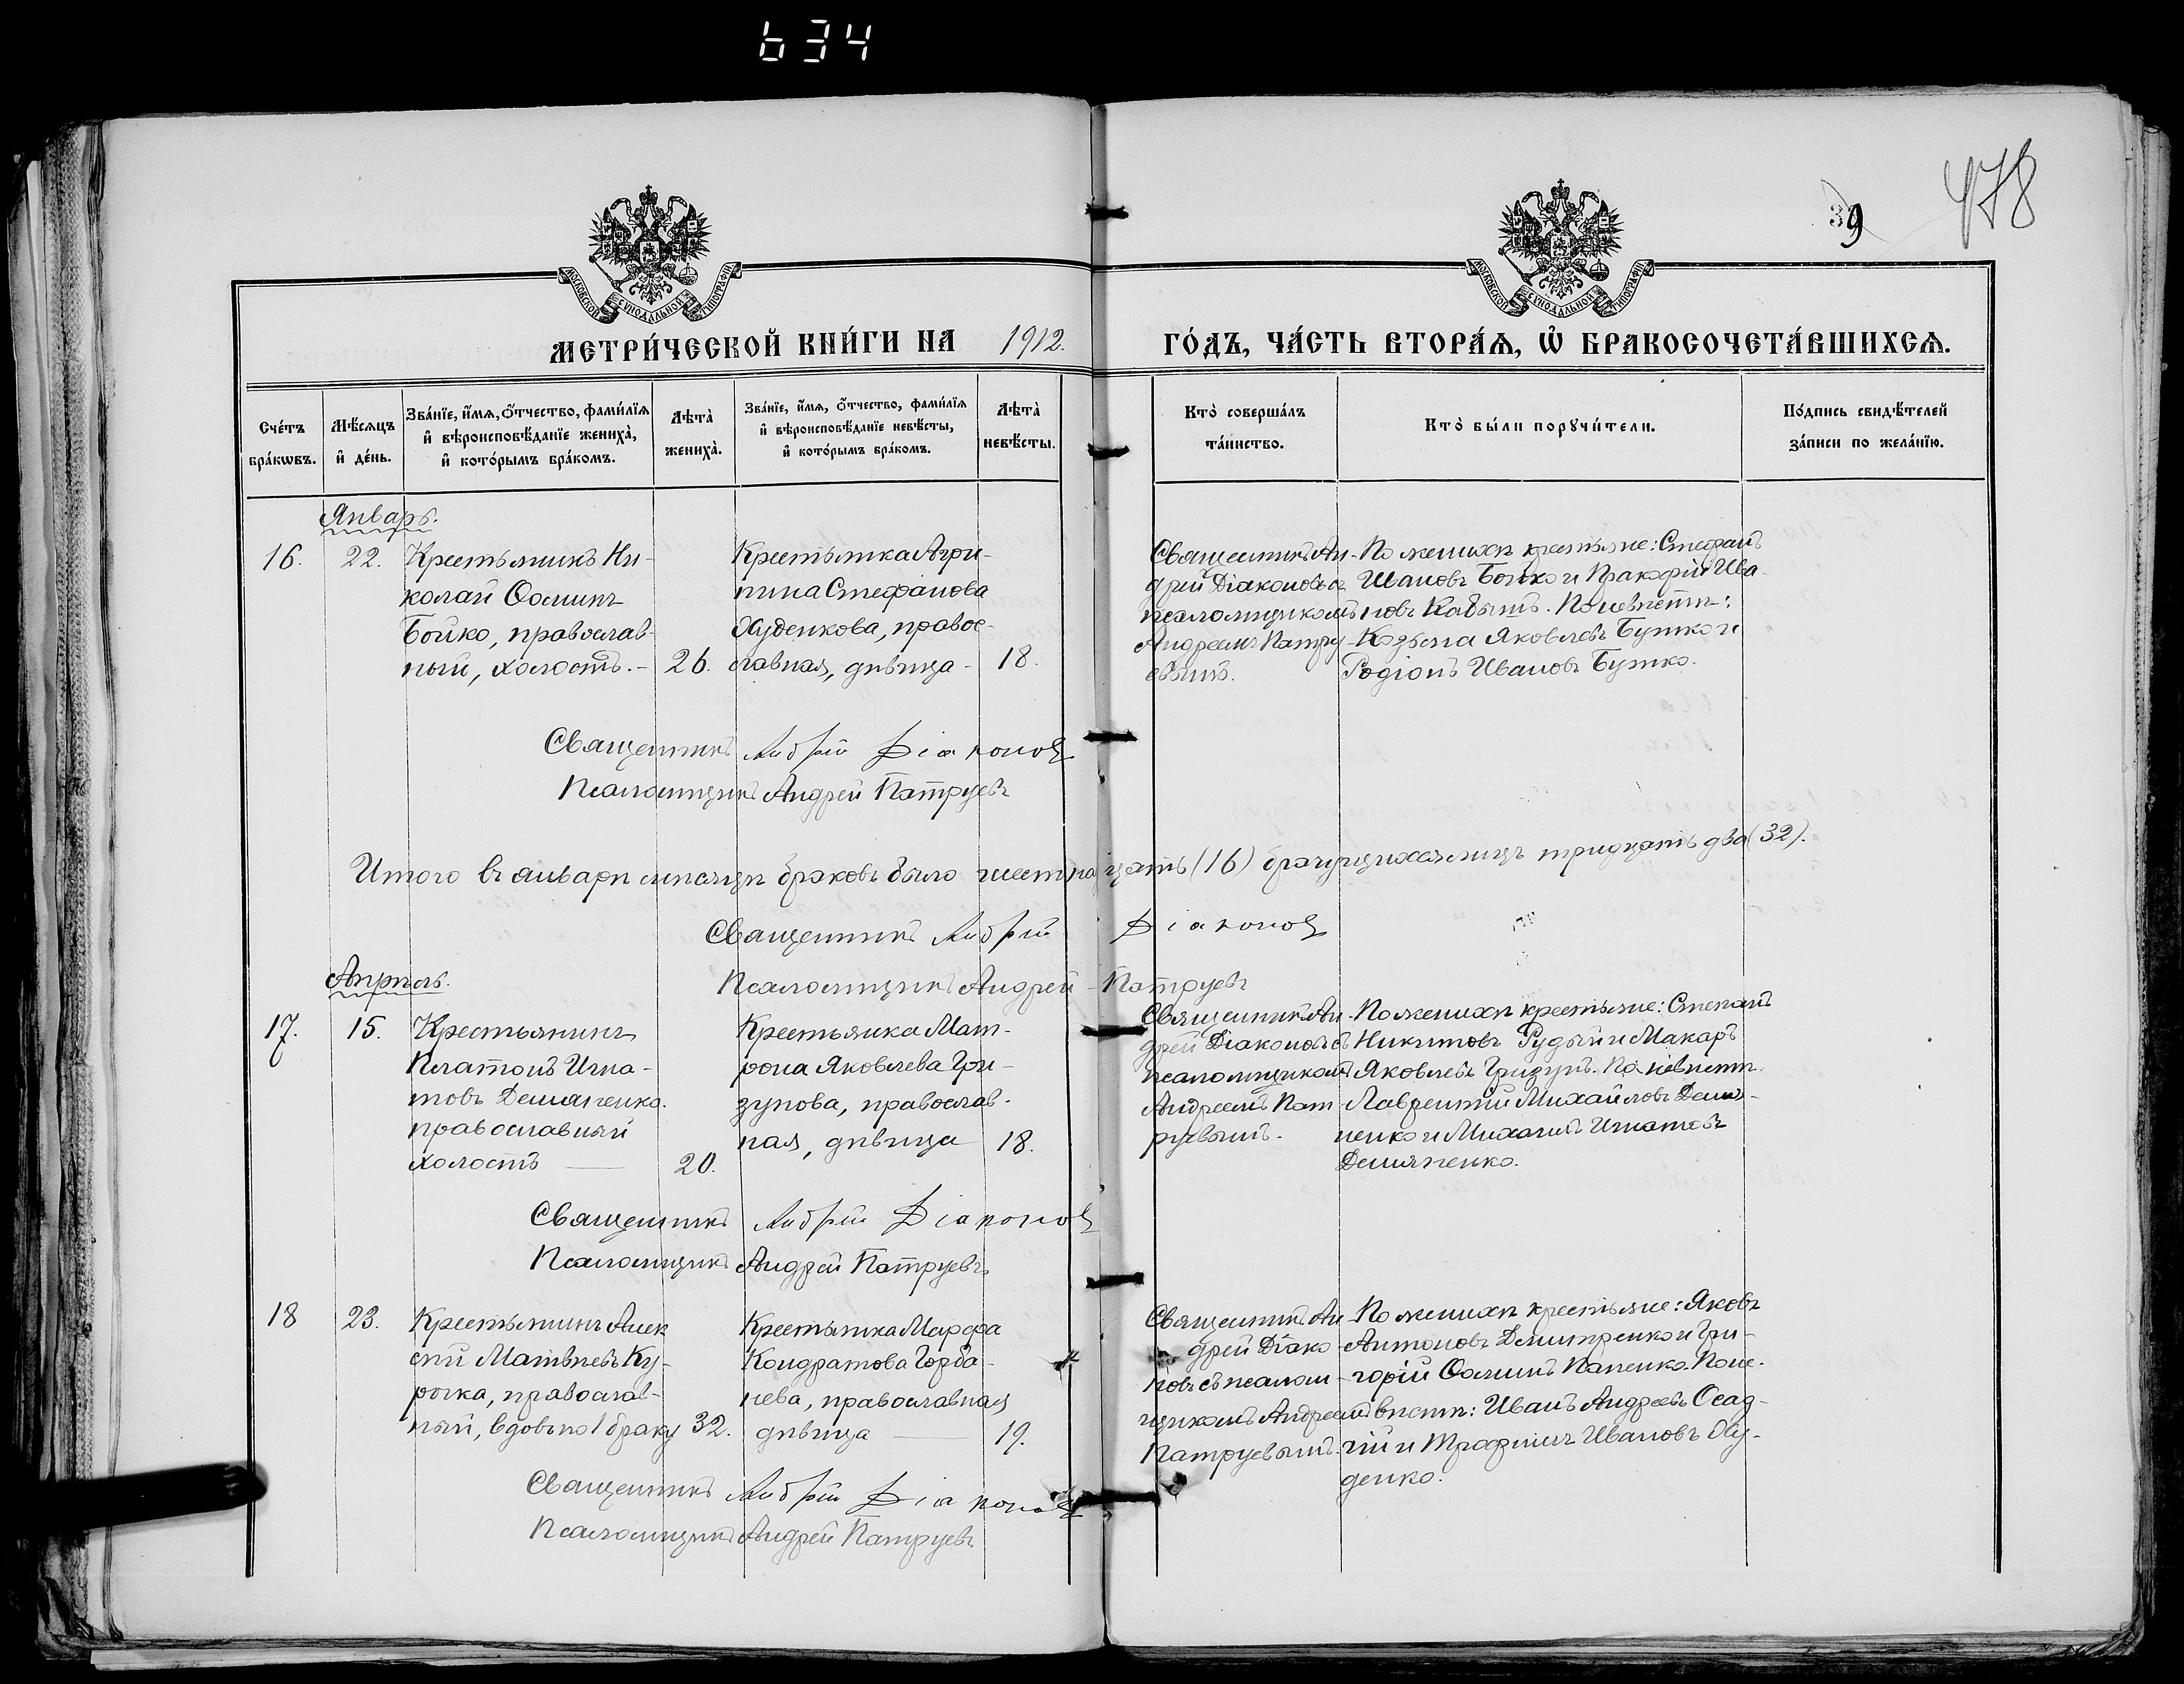 634
39
478
МОСКОВСКОЙ СѴНОДАЛЬНОЙ ТИПОГРАФІИ
МОСКОВСКОЙ СѴНОДАЛЬНОЙ ТИПОГРАФІИ
МЕТРИ́ЧЕСКОЙ КНИ́ГИ НА 1912. ГО́ДЪ, ЧА́СТЬ ВТОРА́Ѧ, Ѡ҆ БРАКОСОЧЕТА́ВШИХСѦ.
Сче́тъ
бра́кѡвъ.
Мѣ́сѧцъ
и҆ де́нь.
Зва́нїе, и҆́мѧ, ѻ҆́тчество, фами́лїѧ
и҆ вѣроисповѣ́данїе жениха̀,
и҆ кото́рымъ бра́комъ.
Лѣта̀
жениха̀.
Зва́нїе, и҆́мѧ, ѻ҆́тчество, фами́лїѧ
и҆ вѣроисповѣ́данїе невѣ́сты,
и҆ кото́рымъ бра́комъ.
Лѣта̀
невѣ́сты.
Кто̀ соверша́лъ
та́инство.
Кто̀ бы́ли порꙋчи́тели.
По́дпись свидѣ́телей
за́писи по жела́нїю.
Январь.
16.
22.
Крестьянинъ Ни-
колай Ѳоминъ
Бойко, православ-
ный, холостъ.-
26.
Крестьянка Агри-
пина Стефанова
Худенкова, правос-
лавная, дѣвица-
18.
Священникъ Ан-
дрей Діаконовъ съ
псаломщикомъ
Андреемъ Патру-
евымъ.
По женихѣ крестьяне: Стефанъ
Ивановъ Бойко и Пракофій Ива-
новъ Кабышъ. По невѣстѣ:
Козьма Яковлевъ Бутко и
Родіонъ Ивановъ Бутко.
Священникъ Андрей Діаконовъ
Псаломщикъ Андрей Патруевъ
Итого въ январѣ мѣсяцѣ браковъ было шестнадцать (16) брачущихся лицъ тридцать два (32).
Священникъ Андрей Діаконовъ
Псаломщикъ Андрей Патруевъ
Апрѣль.
17.
15.
Крестьянинъ
Платонъ Игна-
товъ Демяненко.
православный
холостъ
20.
Крестьянка Мат-
рона Яковлева Гри-
зунова, православ-
ная, дѣвица
18.
Священникъ Ан-
дрей Діаконовъ съ
псаломщикомъ
Андреемъ Пат
руевымъ.
По женихѣ крестьяне: Степанъ
Никитовъ Рудый и Макаръ
Яковлевъ Гризунъ. По невѣстѣ
Лаврентій Михайловъ Демя-
ненко и Михаилъ Игнатовъ
Демяненко.
Священникъ Андрей Діаконовъ
Псаломщикъ Андрей Патруевъ
18
23.
Крестьянинъ Алек
сѣй Матвѣевъ Ку-
рочка, православ-
ный, вдовъ по 1 браку
32.
Крестьянка Марфа
Кондратова Горба-
нева, православная
дѣвица
19.
Священникъ Ан-
дрей Діако-
новъ съ псалом-
щикомъ Андреемъ
Патруевымъ.
По женихѣ крестьяне: Яковъ
Антоновъ Дмитренко и Гри-
горій Ѳоминъ Папенко. По не-
вѣстѣ: Иванъ Андреевъ Осад-
чій и Трафимъ Ивановъ Ху-
денко.
Священникъ Андрей Діаконовъ
Псаломщикъ Андрей Патруевъ